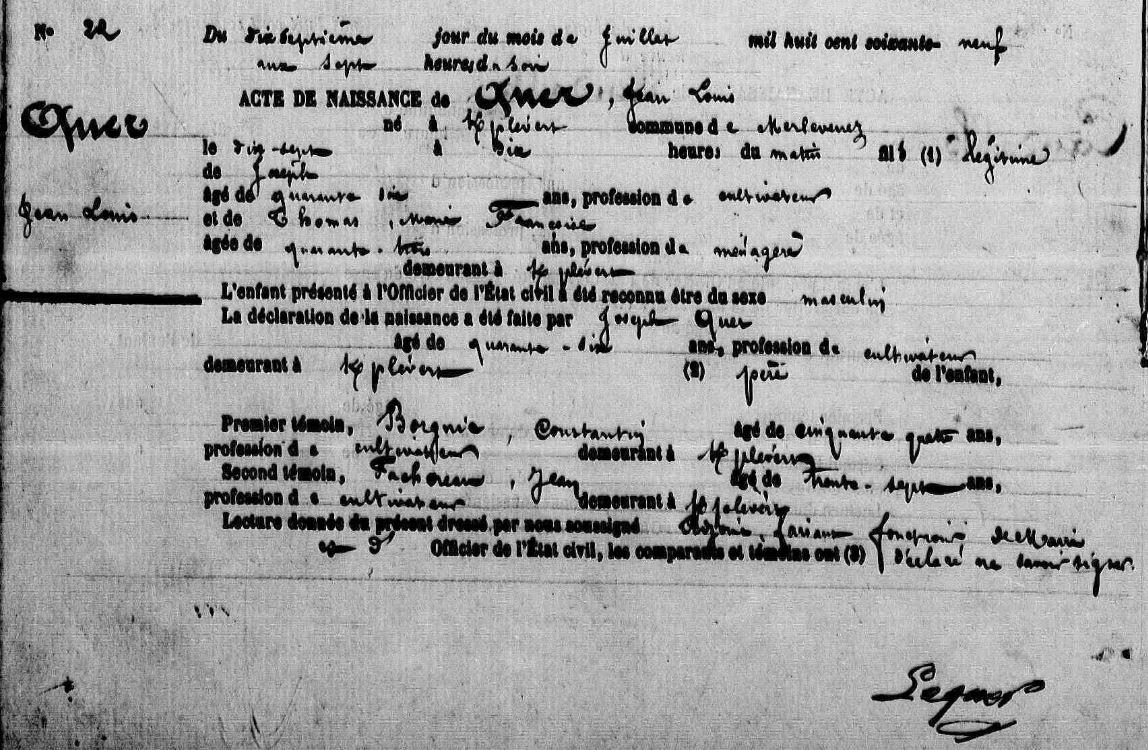 No 22
Du dix septième jour du mois de Juillet mil huit cent soixante- neuf
aux sept heures du soir
ACTE DE NAISSANCE de Quer, Jean Louis
Quer
né à Kplévert commune de Merlevenez
le dix-sept à dix heures du matin fils (1) légitime
de Joseph
âgé de quarante dix ans, profession de cultivateur
Jean Louis
et de Thomas, Marie Françoise
âgée de quarante-trois ans, profession de ménagère
demeurant à Kplévert
L'enfant présenté à l'Officier de l'État civil a été reconnu être du sexe masculin
La déclaration de la naissance a été faite par Joseph Quer
âgé de quarante-dix ans, profession de cultivateur
demeurant à Kplévert (2) père de l'enfant,
Premier témoin, Borgnic, Constantin âgé de cinquante quatre ans,
profession de cultivateur demeurant à Kplévert
Second témoin, Jean âgé de trente-sept ans,
profession de cultivateur demeurant à Kplévert
Lecture donnée du présent dressé par nous soussigné faisant fonctions de Maire
et d' Officier de l'État civil, les comparants et témoins ont (3) déclaré ne savoir signer.
Lequer